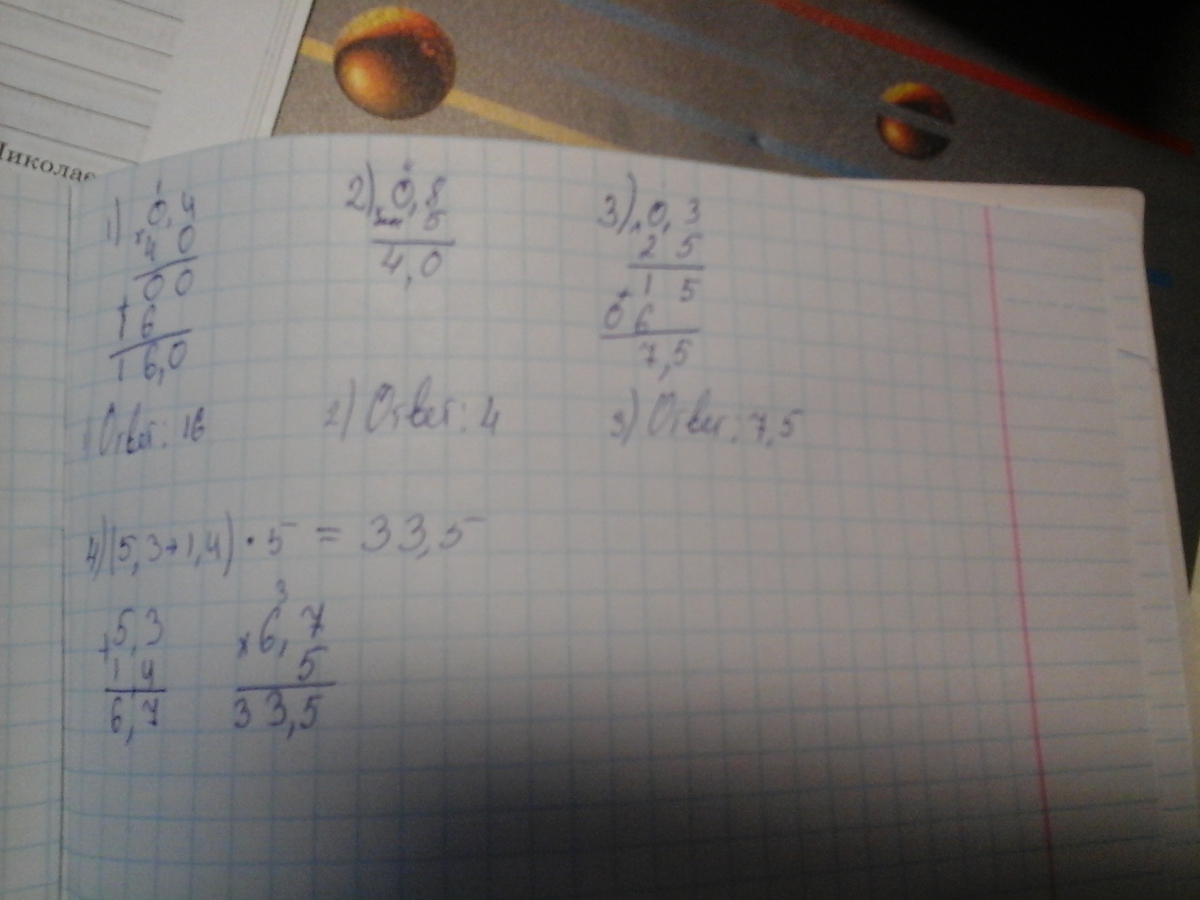 Николае
1) 0,4
× 40
00
+
16
16,0
1) Ответ: 16
2) × 0,8
5
4,0
2) Ответ: 4
3) × 0,3
25
15
+
06
7,5
3) Ответ: 7,5
4) (5,3+1,4) · 5 = 33,5
+ 5,3
1 4
6,7
3
× 6,7
5
33,5